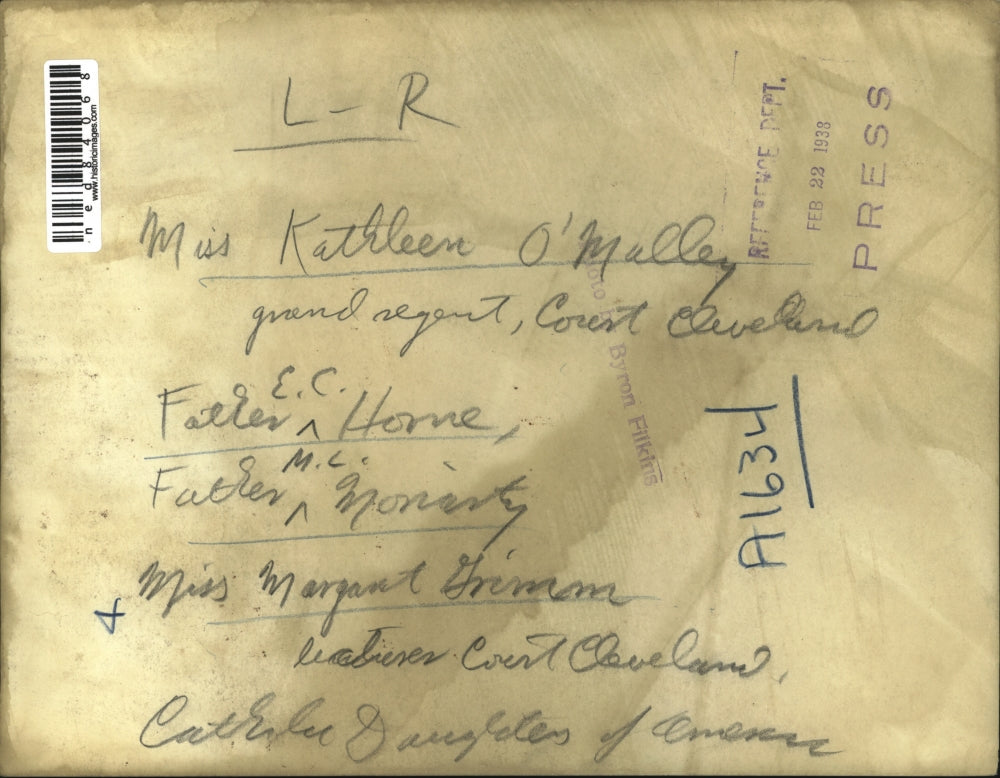 L - R
Miss Kathleen O'Malley
grand regent, Court Cleveland
Father E.C. Horne,
Father M.L. Moriarty
Miss Margaret Grimm
lecturer Court Cleveland.
Catholic Daughters of America
4
A11634
REFERENCE DEPT.
FEB 22 1938
PRESS
Byron Filkins
ned84068
www.historicimages.com